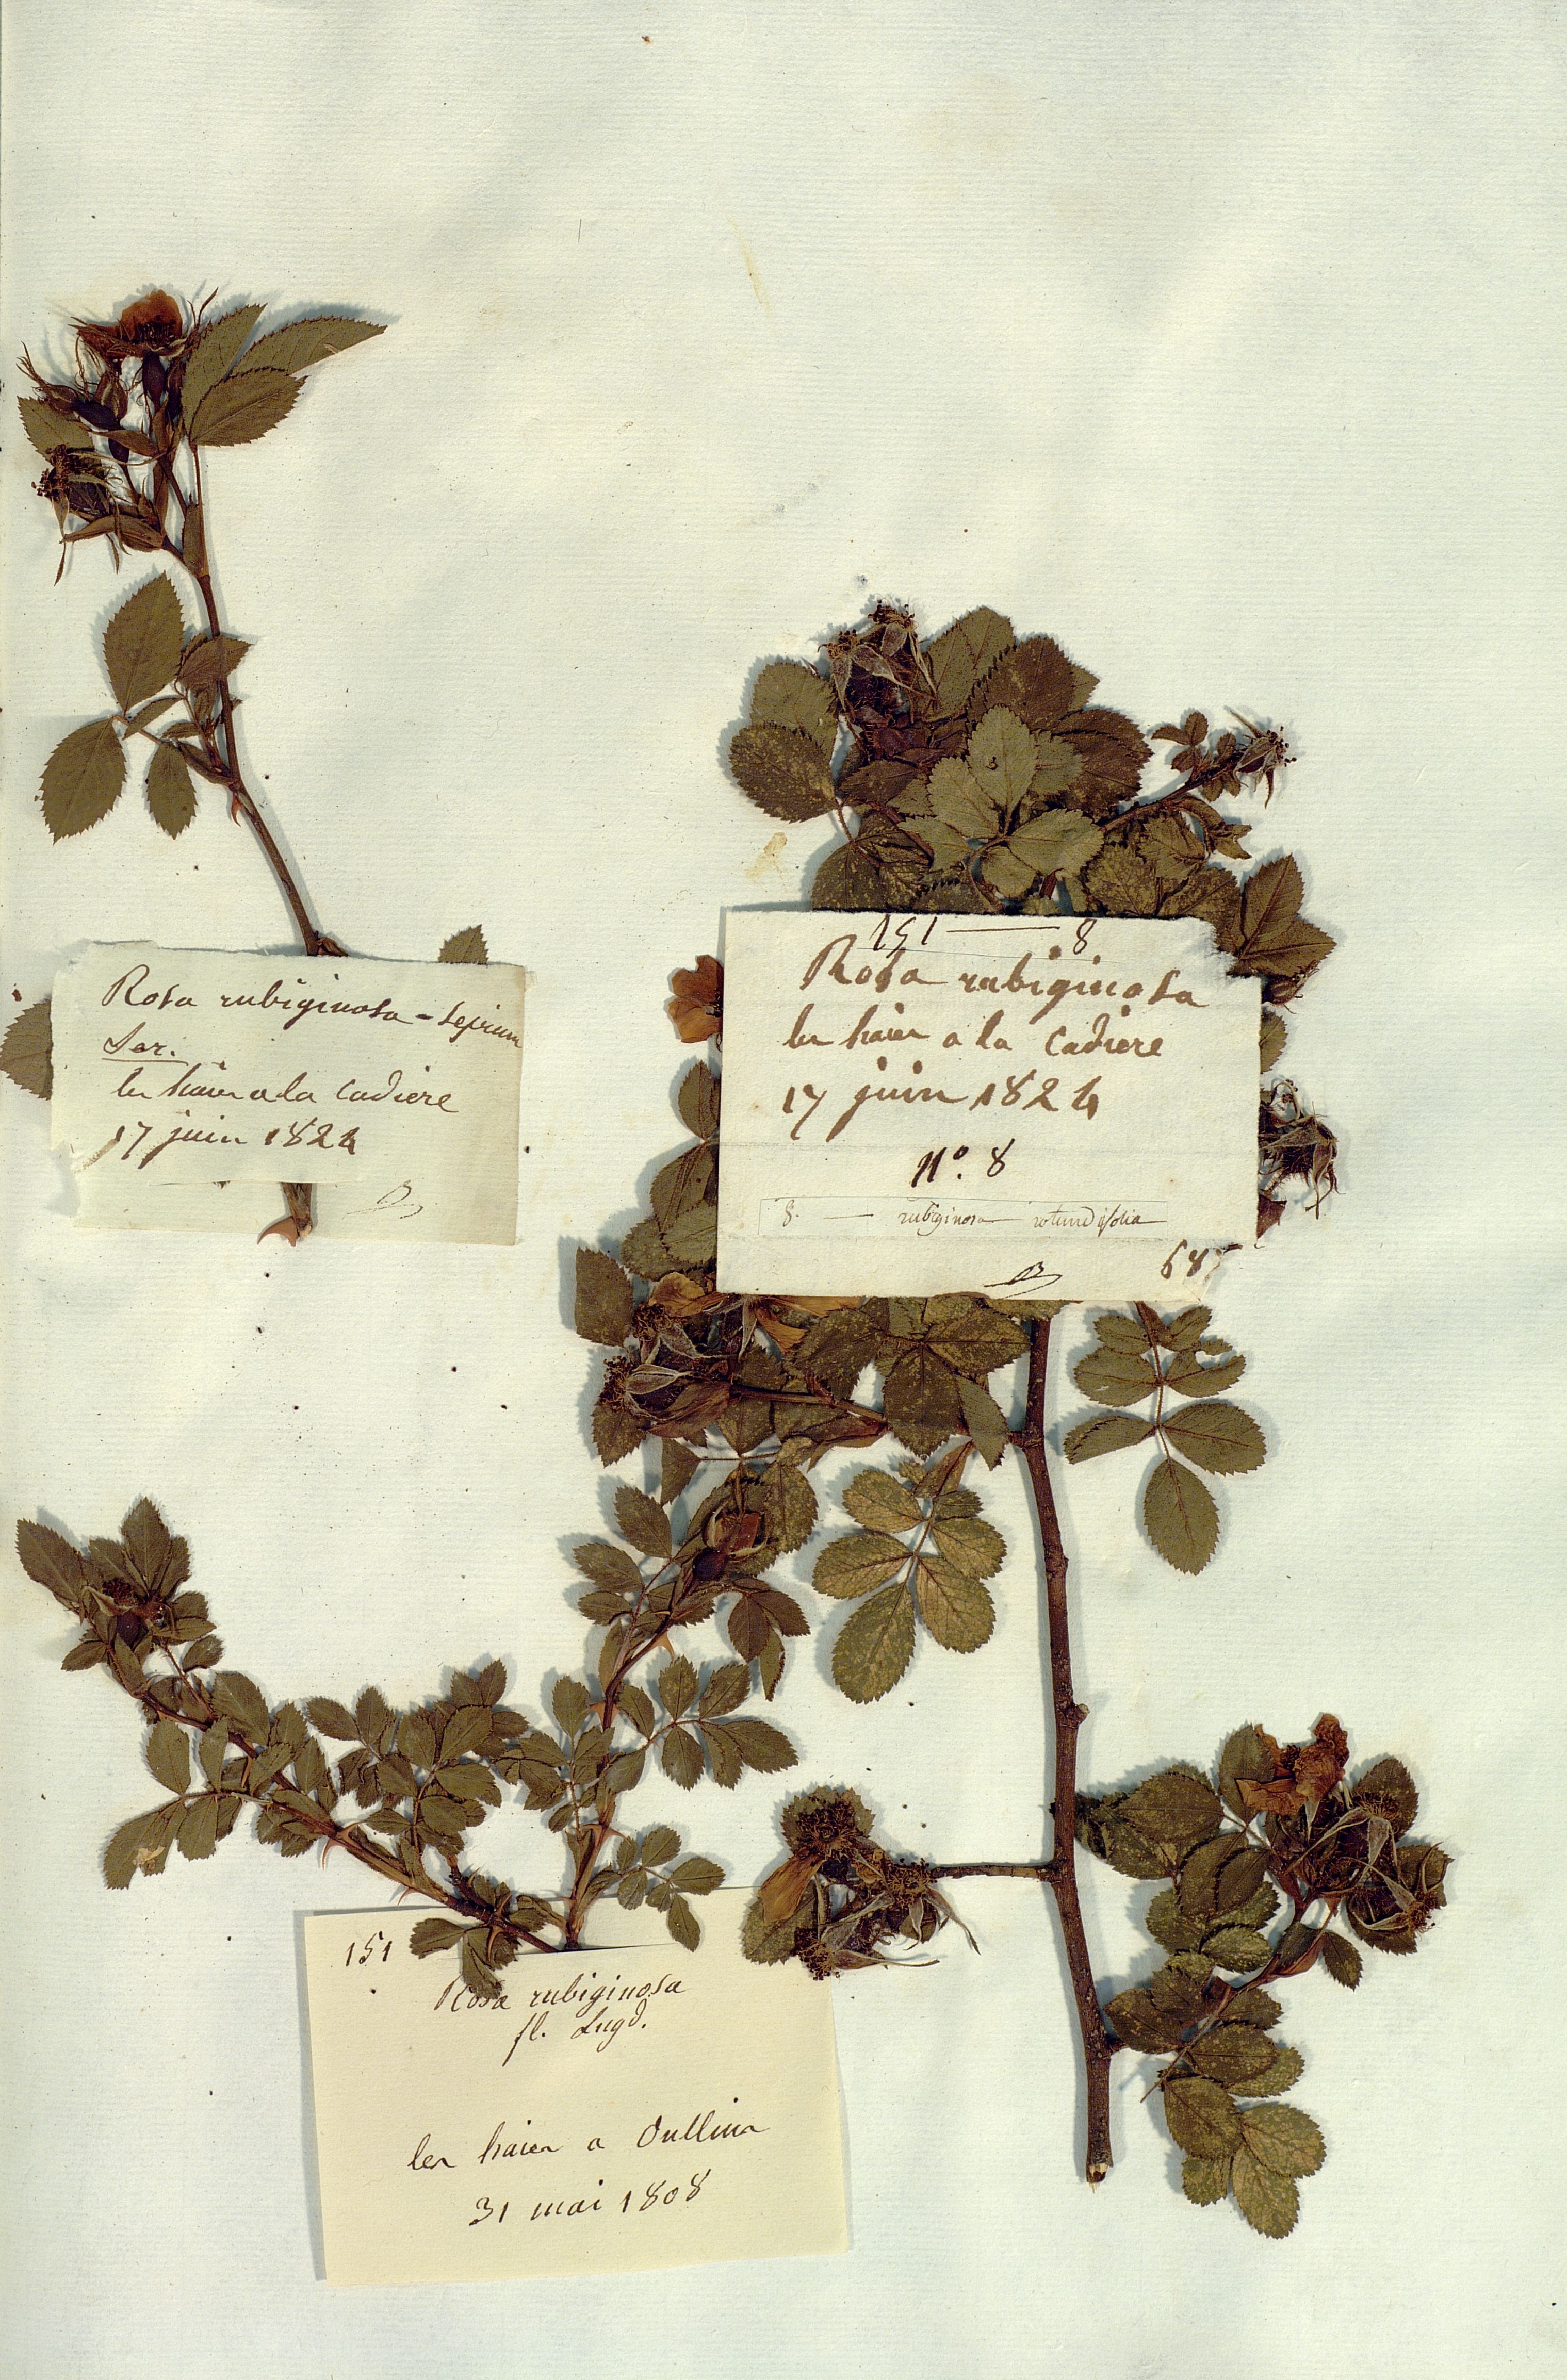 Rosa rubiginosa - sepium
Ser.
les haies a la Cadiere
17 juin 1824
151 — 8
Rosa rubiginosa
les haies a la Cadiere
17 juin 1824
N°. 8
8. — rubiginosa rotundifolia
151
Rosa rubiginosa
fl. Lugd.
les haies a Oullins
31 mai 1808